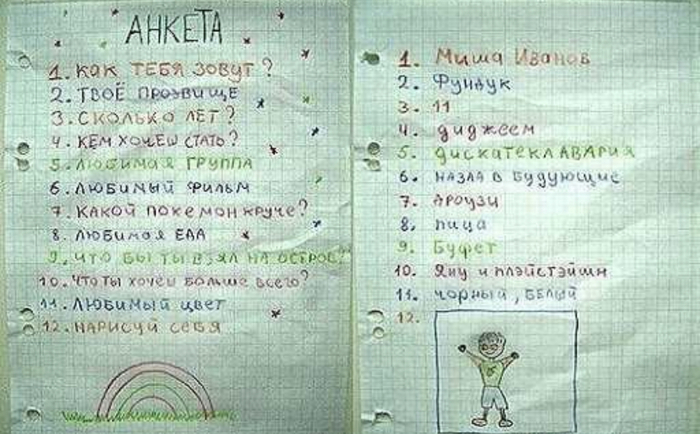 АНКЕТА
1. КАК ТЕБЯ ЗОВУТ?
2. ТВОЁ ПРОЗВИЩЕ
3. СКОЛЬКО ЛЕТ?
4. КЕМ ХОЧЕШ СТАТЬ?
5. ЛЮБИМАЯ ГРУППА
6. ЛЮБИМЫЙ ФИЛЬМ
7. КАКОЙ ПОКЕМОН КРУЧЕ?
8. ЛЮБИМАЯ ЕДА
9. ЧТО БЫ ТЫ ВЗЯЛ НА ОСТРОВ?
10. ЧТО ТЫ ХОЧЕШ БОЛЬШЕ ВСЕГО?
11. ЛЮБИМЫЙ ЦВЕТ
12. НАРИСУЙ СЕБЯ
1. Миша Иванов
2. Фундук
3. 11
4. диджеем
5. дискатека АВАРИЯ
6. НАЗАД В БУДУЮЩИЕ
7. Дроузи
8. пица
9. Буфет
10. Яну и плэйстэйшн
11. чорный, БЕЛЫЙ
12.